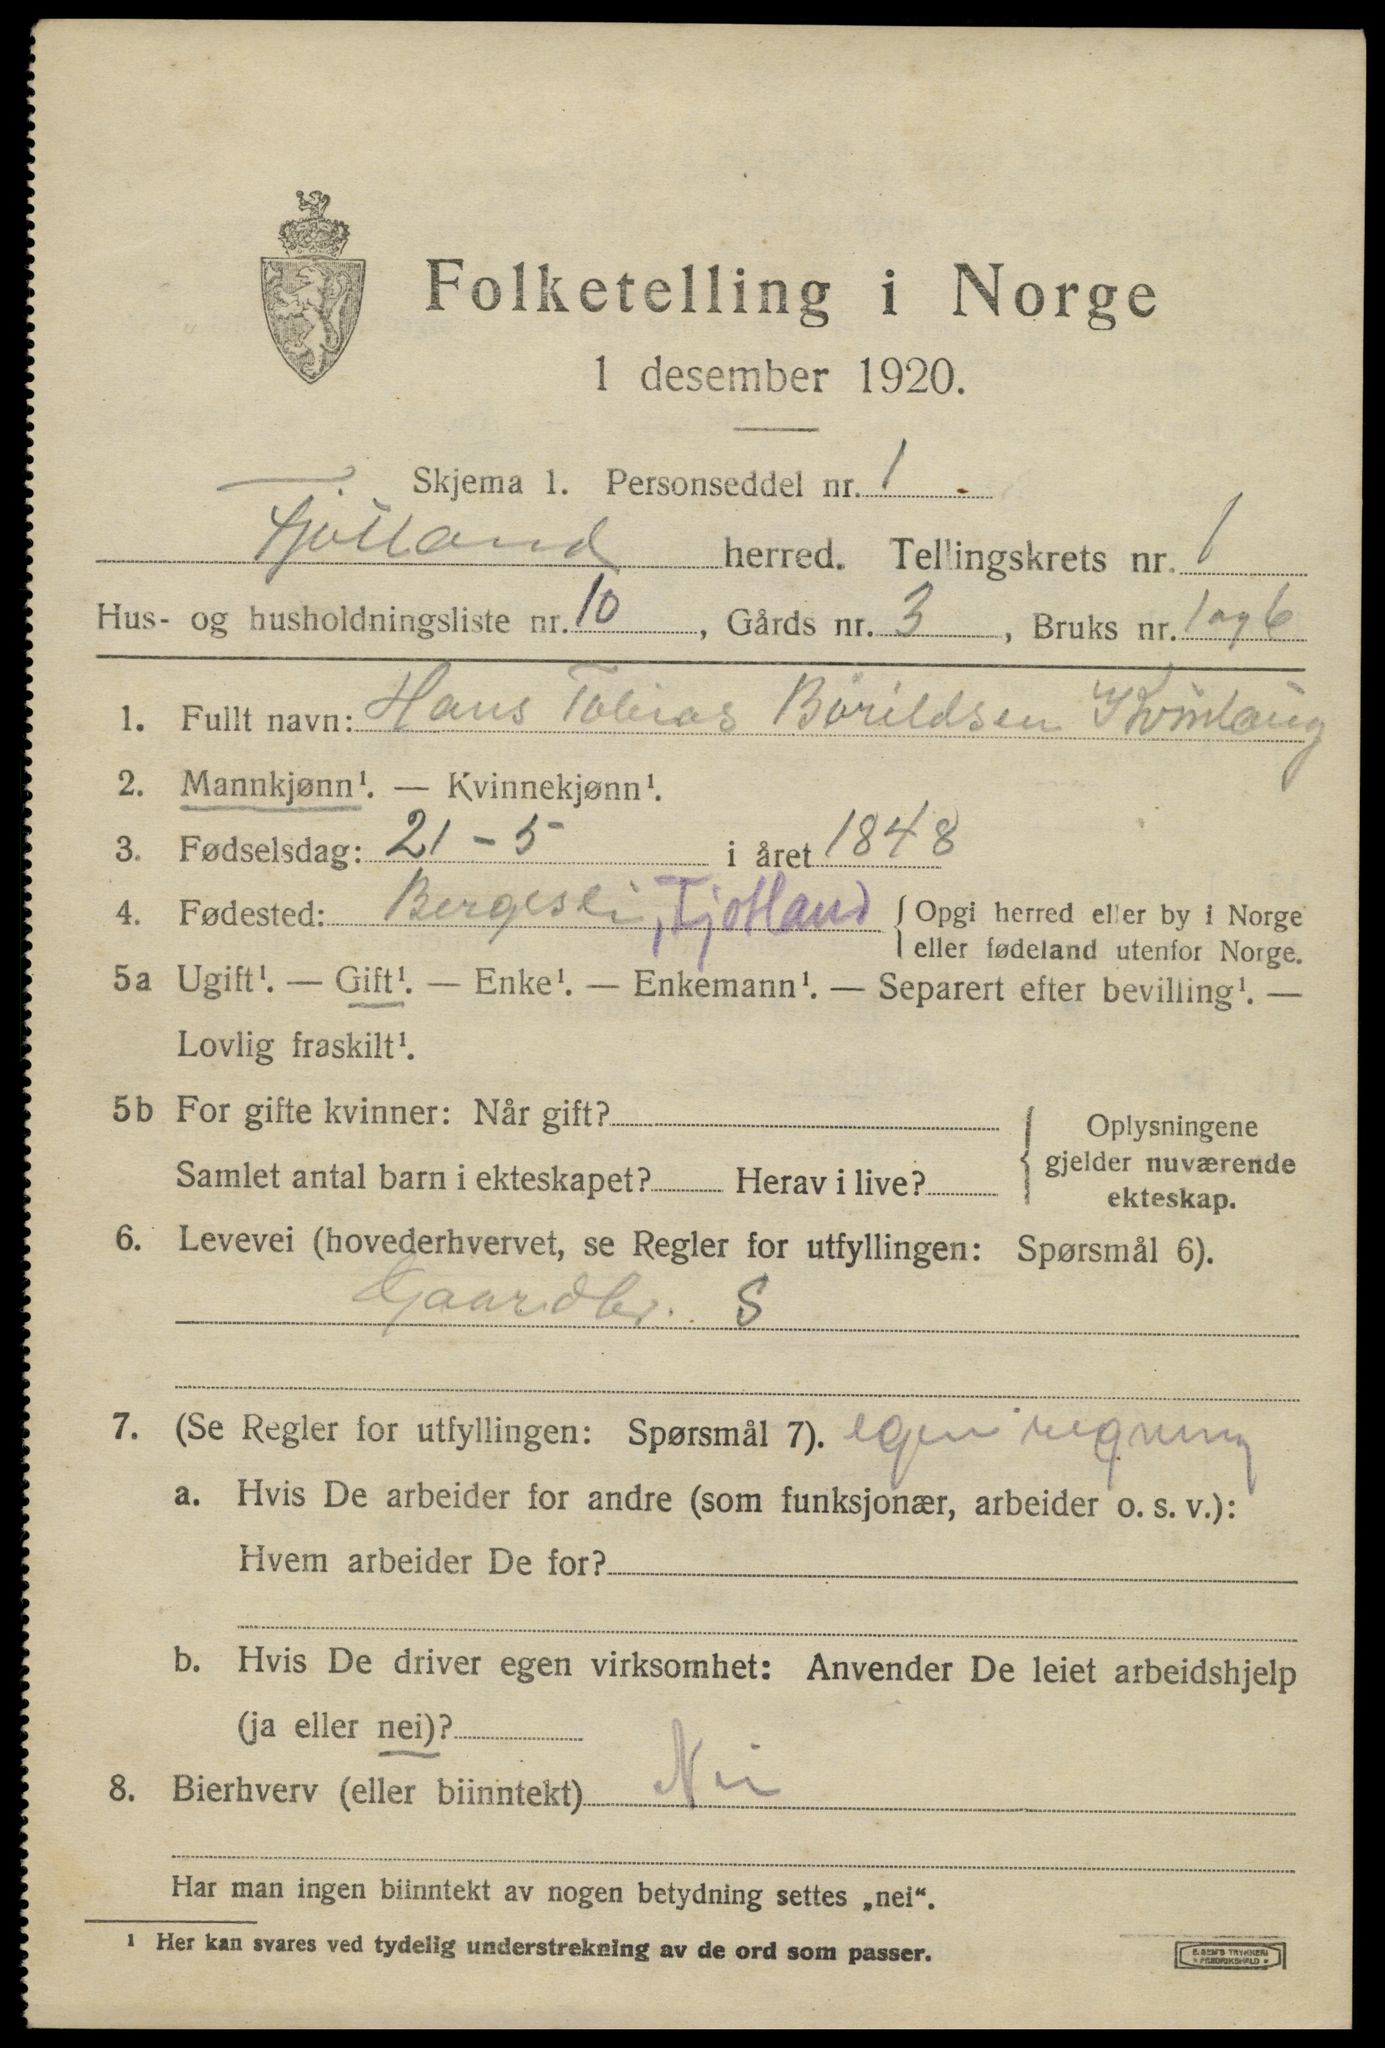 Folketelling i Norge
1 desember 1920.
Skjema 1. Personseddel nr. 1
Fjotland herred. Tellingskrets nr. 1
Hus- og husholdningsliste nr. 10, Gårds nr. 3, Bruks nr. 1 og 6
1. Fullt navn: Hans Tobias Bårildsen
2. Mannkjønn¹. — Kvinnekjønn¹.
3. Fødselsdag: 21 - 5 i året 1848
4. Fødested: Bergesli, Fjotland { Opgi herred eller by i Norge
eller fødeland utenfor Norge.
5a Ugift¹. — Gift¹. — Enke¹. — Enkemann¹. — Separert efter bevilling¹. —
Lovlig fraskilt¹.
5b For gifte kvinner: Når gift?
Samlet antal barn i ekteskapet? Herav i live?
Oplysningene
gjelder nuværende
ekteskap.
6. Levevei (hovederhvervet, se Regler for utfyllingen: Spørsmål 6).
Gaardbr. S
7. (Se Regler for utfyllingen: Spørsmål 7). egen regning
a. Hvis De arbeider for andre (som funksjonær, arbeider o. s. v.):
Hvem arbeider De for?
b. Hvis De driver egen virksomhet: Anvender De leiet arbeidshjelp
(ja eller nei)?
8. Bierhverv (eller biinntekt) Nei
Har man ingen biinntekt av nogen betydning settes „nei“.
¹ Her kan svares ved tydelig understrekning av de ord som passer.
E. SEM'S TRYKKERI
* FREDRIKSHALD *